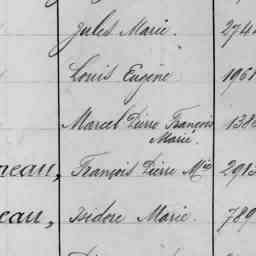 Jules Marie. 274
Louis Eugène 1961
Marcel Pierre François 138
Marie.
neau, François Pierre Mie 2913
eau, Isidore Marie. 789